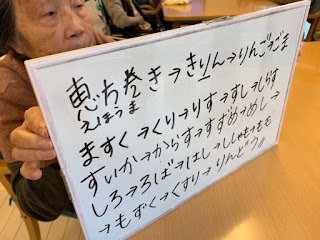 恵方巻き→きりん→りんご→ごま
えほうま
ますく→くり→りす→すし→しらす
すいか→からす→すずめ→めし→
しろ→ろば→はし→ししゃも→もも
→もずく→くすり→りんどう。